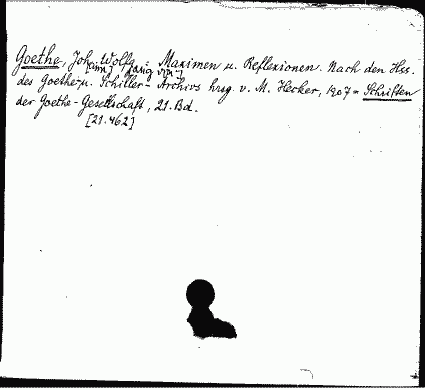 Goethe, Joh[ann] Wolfg[ang von]: Maximen u. Reflexionen. Nach den Hss.
des Goethe- u. Schiller-Archivs hrsg. v. M. Hecker, 1907 = Schriften
der Goethe-Gesellschaft, 21. Bd.
[21.462]